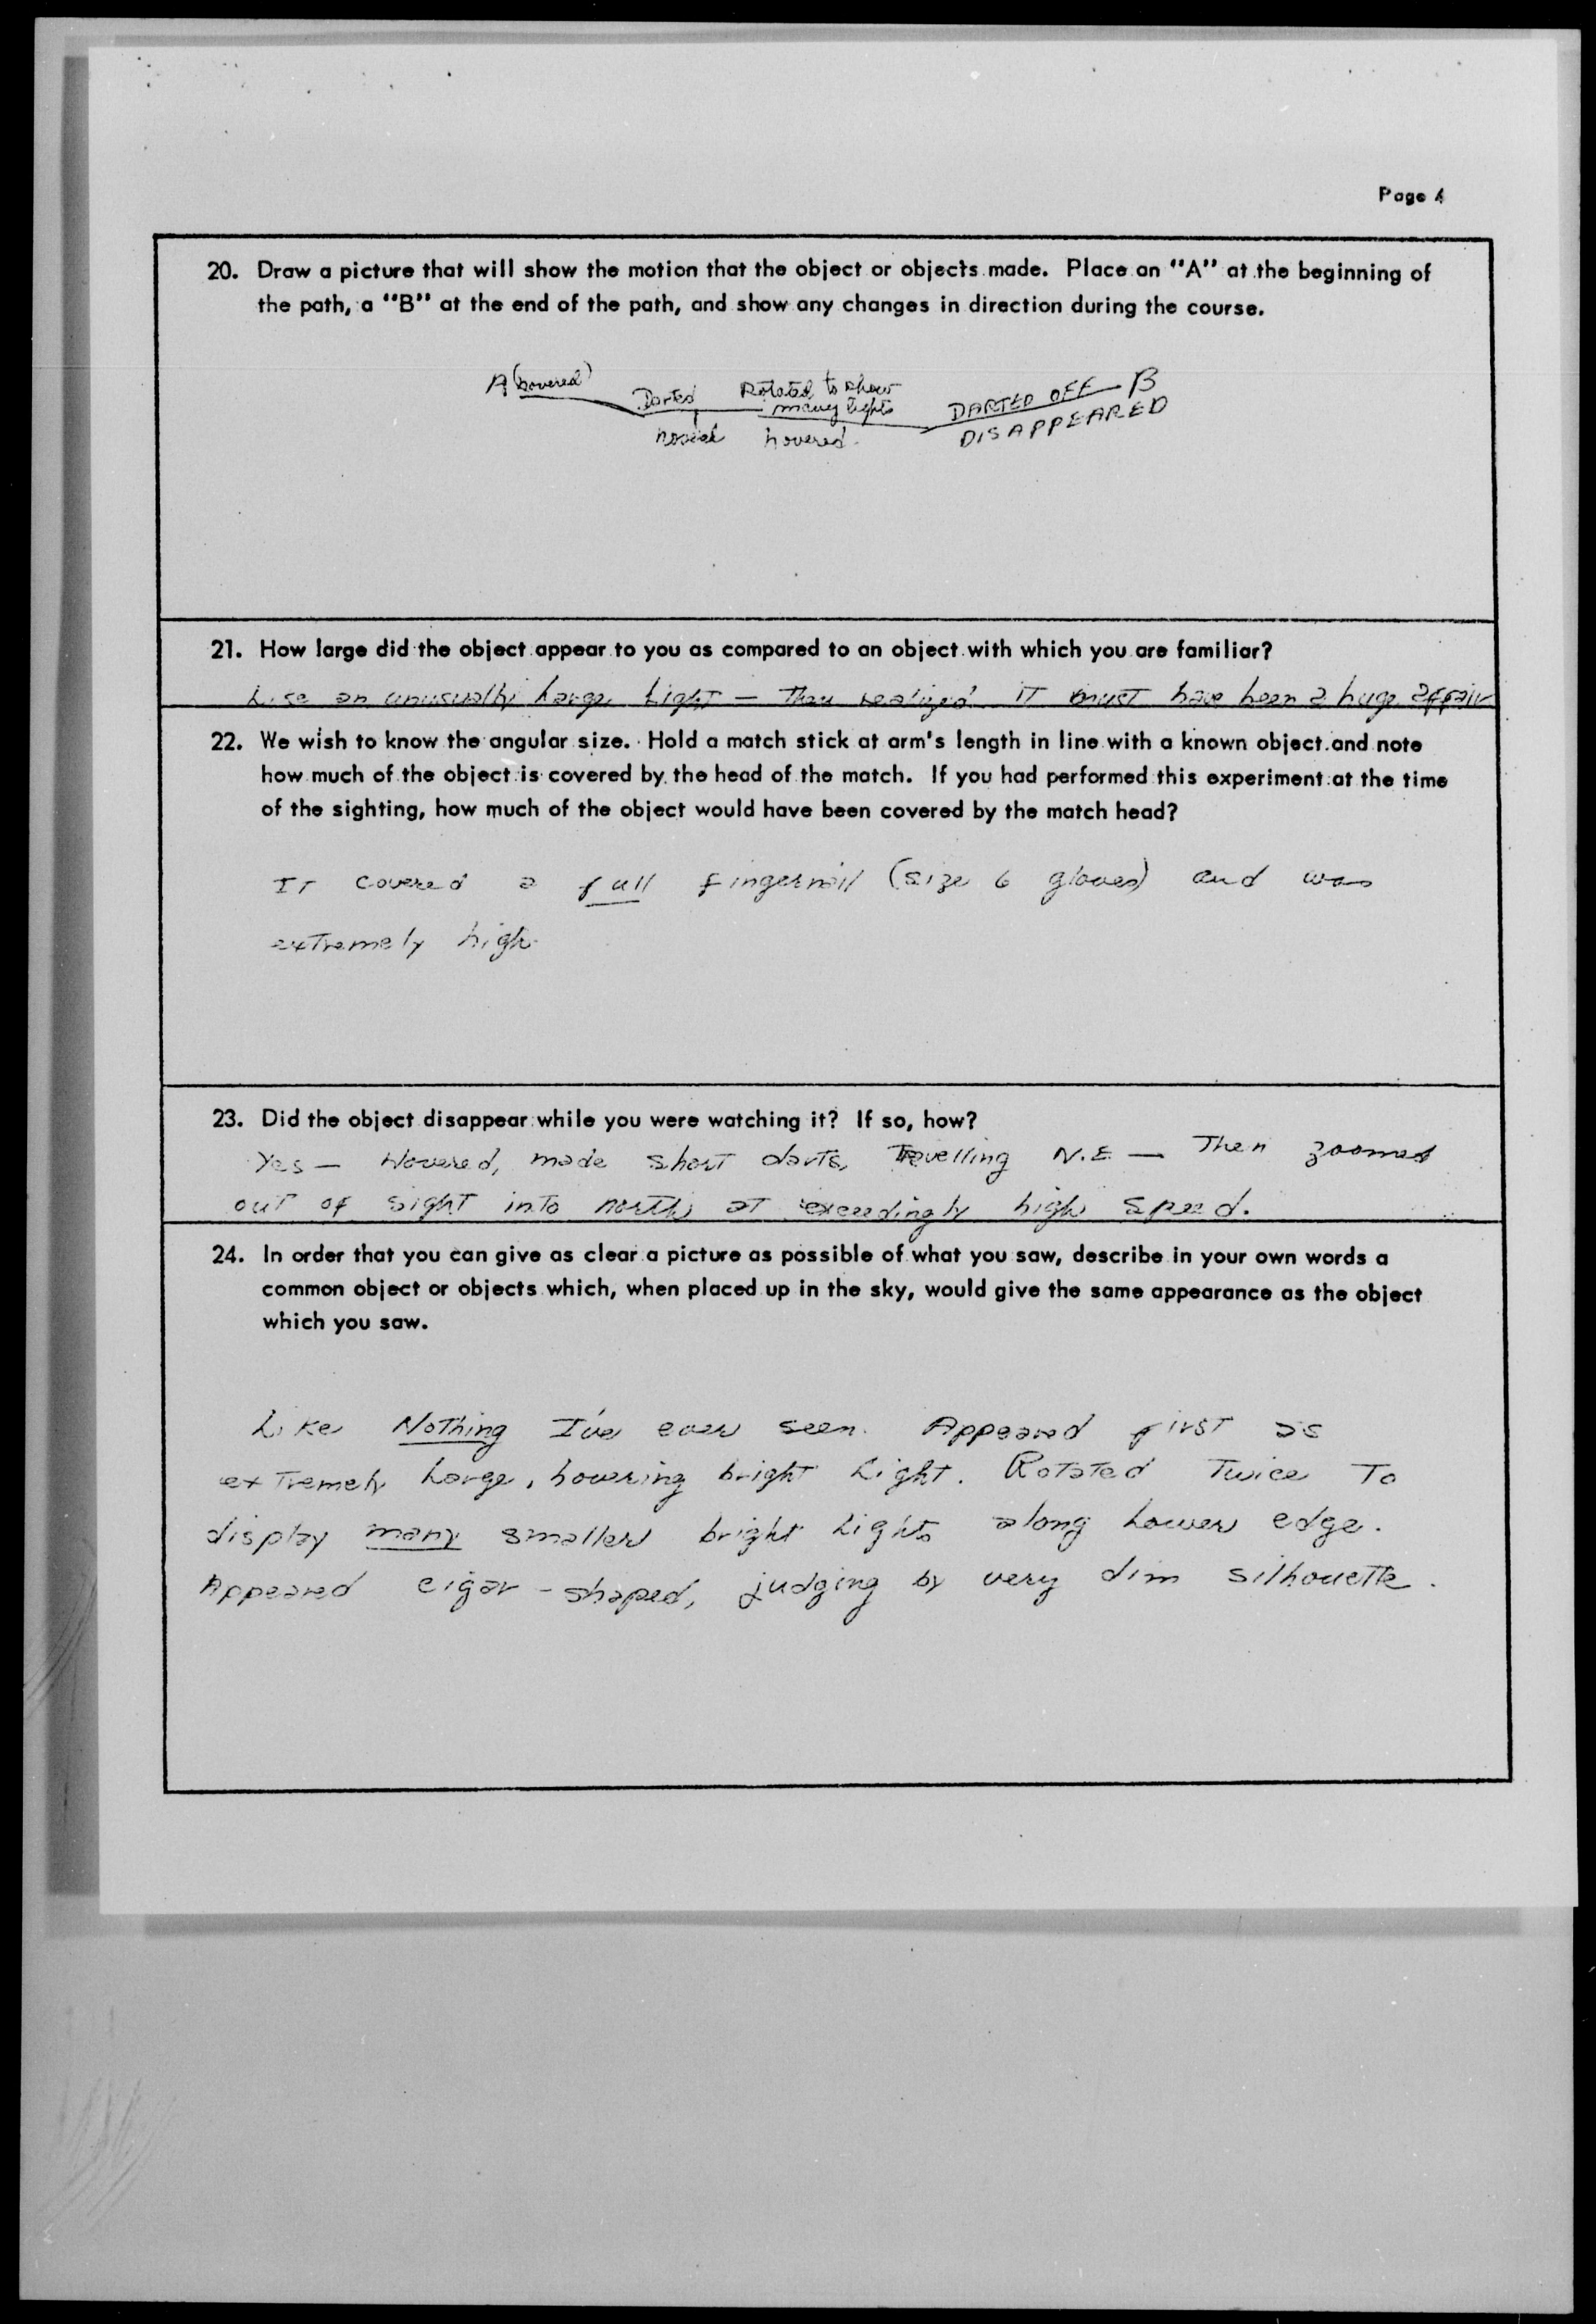 Page 4
20. Draw a picture that will show the motion that the object or objects made. Place an "A" at the beginning of
the path, a "B" at the end of the path, and show any changes in direction during the course.
A (hovered) Darted Rotated to show
many lights DARTED OFF B
hovered. DISAPPEARED
21. How large did the object appear to you as compared to an object with which you are familiar?
Like an unusually large light — then realized it must have been a huge affair
22. We wish to know the angular size. Hold a match stick at arm's length in line with a known object and note
how much of the object is covered by the head of the match. If you had performed this experiment at the time
of the sighting, how much of the object would have been covered by the match head?
It covered a full fingernail (size 6 gloves) and was
extremely high.
23. Did the object disappear while you were watching it? If so, how?
Yes — Hovered, made short darts, Travelling N.E — Then zoomed
out of sight into north at exceedingly high speed.
24. In order that you can give as clear a picture as possible of what you saw, describe in your own words a
common object or objects which, when placed up in the sky, would give the same appearance as the object
which you saw.
Like Nothing I've ever seen. Appeared first as
extremely large, hovering bright light. Rotated Twice To
display many smaller bright lights along lower edge.
Appeared cigar-shaped, judging by very dim silhouette.